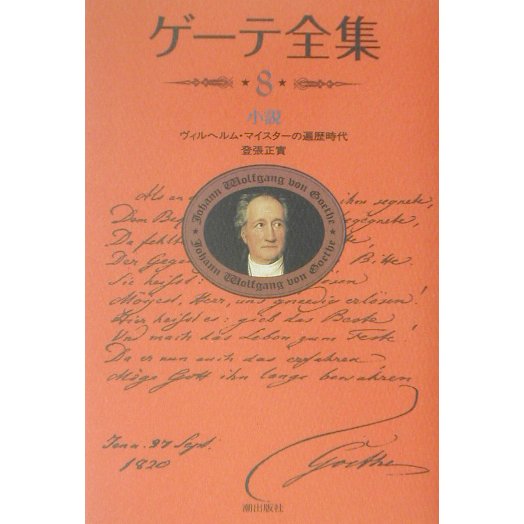 ゲーテ全集
8
小説
ヴィルヘルム・マイスターの遍歴時代
登張正實
Johann Wolfgang von Goethe
Johann Wolfgang von Goethe
Als an ihm segnete,
Dem Beg gegnete,
Da fehlte
Der Gegen Bitte
Sie heißt: lösen
Mögest, Herr, uns gnaedig erlösen!
Hier heißt es: gieb das Beste
Und mach das Leben zum Feste
Da er nun auch das erfahren
Möge Gott ihn lange bewahren
Jena. 27 Sept.
1820
Goethe
潮出版社